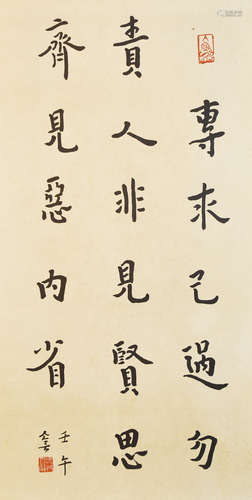 專求己過勿
責人非見賢思
齊見惡內省
壬午